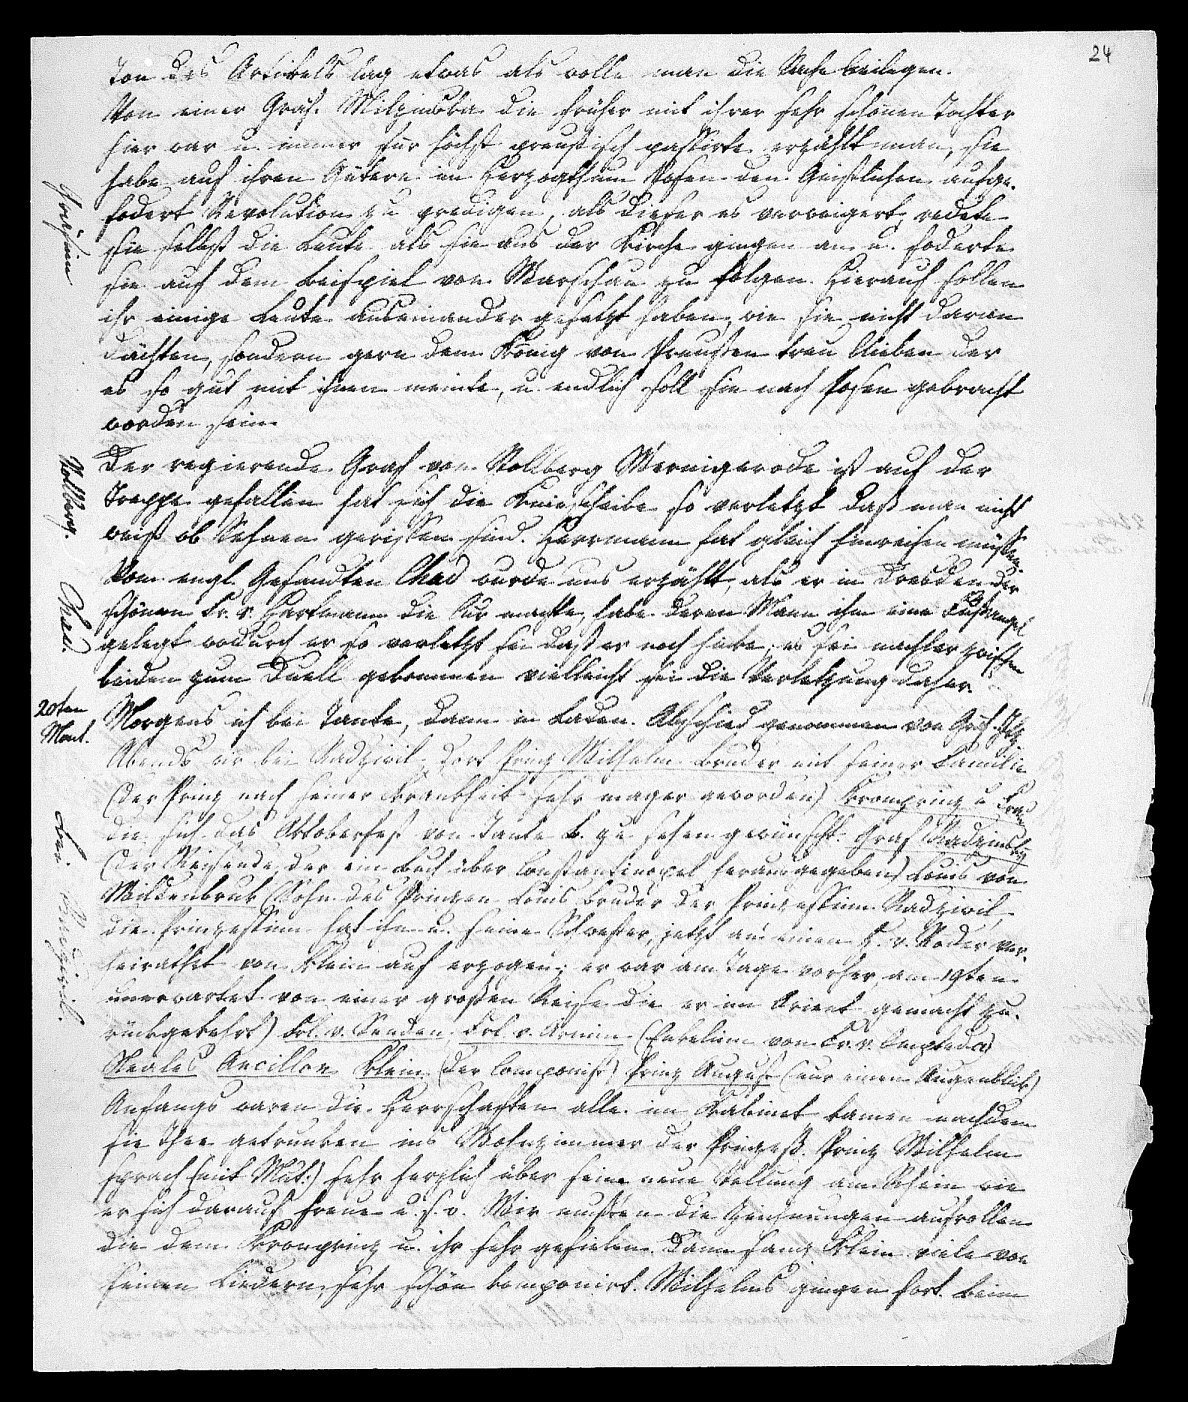 24
Ton des Artikels lag etwas als wolle man die Sache beilegen.
Von einer Gräf. Milzinska die früher mit ihrer sehr schönen Tochter
hier war u. immer für höchst preußisch passirte erzählt man, sie
habe auf ihren Gütern im Herzogthum Posen den Geistlichen aufge-
fodert Revolution zu predigen, als dieser es verweigert, redete
sie selbst die Leute als sie aus der Kirche gingen an u. foderte
sie auf dem Beispiel von Warschau zu folgen. Hierauf sollen
ihr einige Leute auseinander gesetzt haben, wie sie nicht daran
dächten, sondern gern dem König von Preußen treu blieben der
es so gut mit ihnen meinte, u. endlich soll sie nach Posen gebracht
worden sein.
Stollberg.
Der regierende Graf von Stollberg Wernigerode ist auf der
Treppe gefallen hat sich die Kniescheibe so verletzt daß man nicht
weiß ob Sehnen gerissen sind. Herrmann hat gleich hinreisen müssen.
Chad.
Vom engl. Gesandten Chad wurde uns erzählt, als er in Dresden der
schönen Fr. v. Hartmann die Cur machte, habe deren Mann ihm eine Fußangel
gelegt wodurch er so verletzt sei daß er noch hinke, es sei nachher zwischen
beiden zum Duell gekommen vielleicht sei die Verletzung daher.
20ten
Mont.
Morgens ich bei Tante, dann im Laden. Abschied genommen von Gräf.
Bei Radziwil.
Abends wir bei Radziwil. Dort Prinz Wilhelm Bruder mit seiner Familie
(der Prinz nach seiner Krankheit sehr mager geworden) Kronprinz u. Frau
die sich das Oktoberfest von Tante B. zu sehen gewünscht. Graf
(der Reisende, der ein Buch über Constantinopel herausgegeben) Louis von
Wildenbruk (Sohn des Prinzen Louis Bruder der Prinzessinn Radziwil,
die Prinzessinn hat ihn u. seine Schwester, jetzt an einen H. v. Roder ver-
heirathet von klein auf erzogen; er war am Tage vorher, am 19ten
unerwartet von einer großen Reise die er im Orient gemacht zu-
rückgekehrt) Frl. v. Senden Frl. v. Arnim (Enkelinn von Fr. v. Ompteda)
Neales Ancillon Klein (der Componist) Prinz August (nur einen Augenblick)
Anfangs waren die Herrschaften alle im Kabinet kamen nachdem
sie Thee getrunken ins Wohnzimmer der Prinzeß. Prinz Wilhelm
sprach (mit Mut:) sehr herzlich über seine neue Stellung am Rhein wie
er sich darauf freue u. s. w. Wir mußten die Zeichnungen aufrollen
die dem Kronprinz u. ihr sehr gefielen. Dann sang Klein viele von
seinen Liedern, sehr schön komponirt. Wilhelms gingen fort. Beim